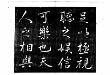 足以極視
聽之娛信
可樂也夫
人之相與